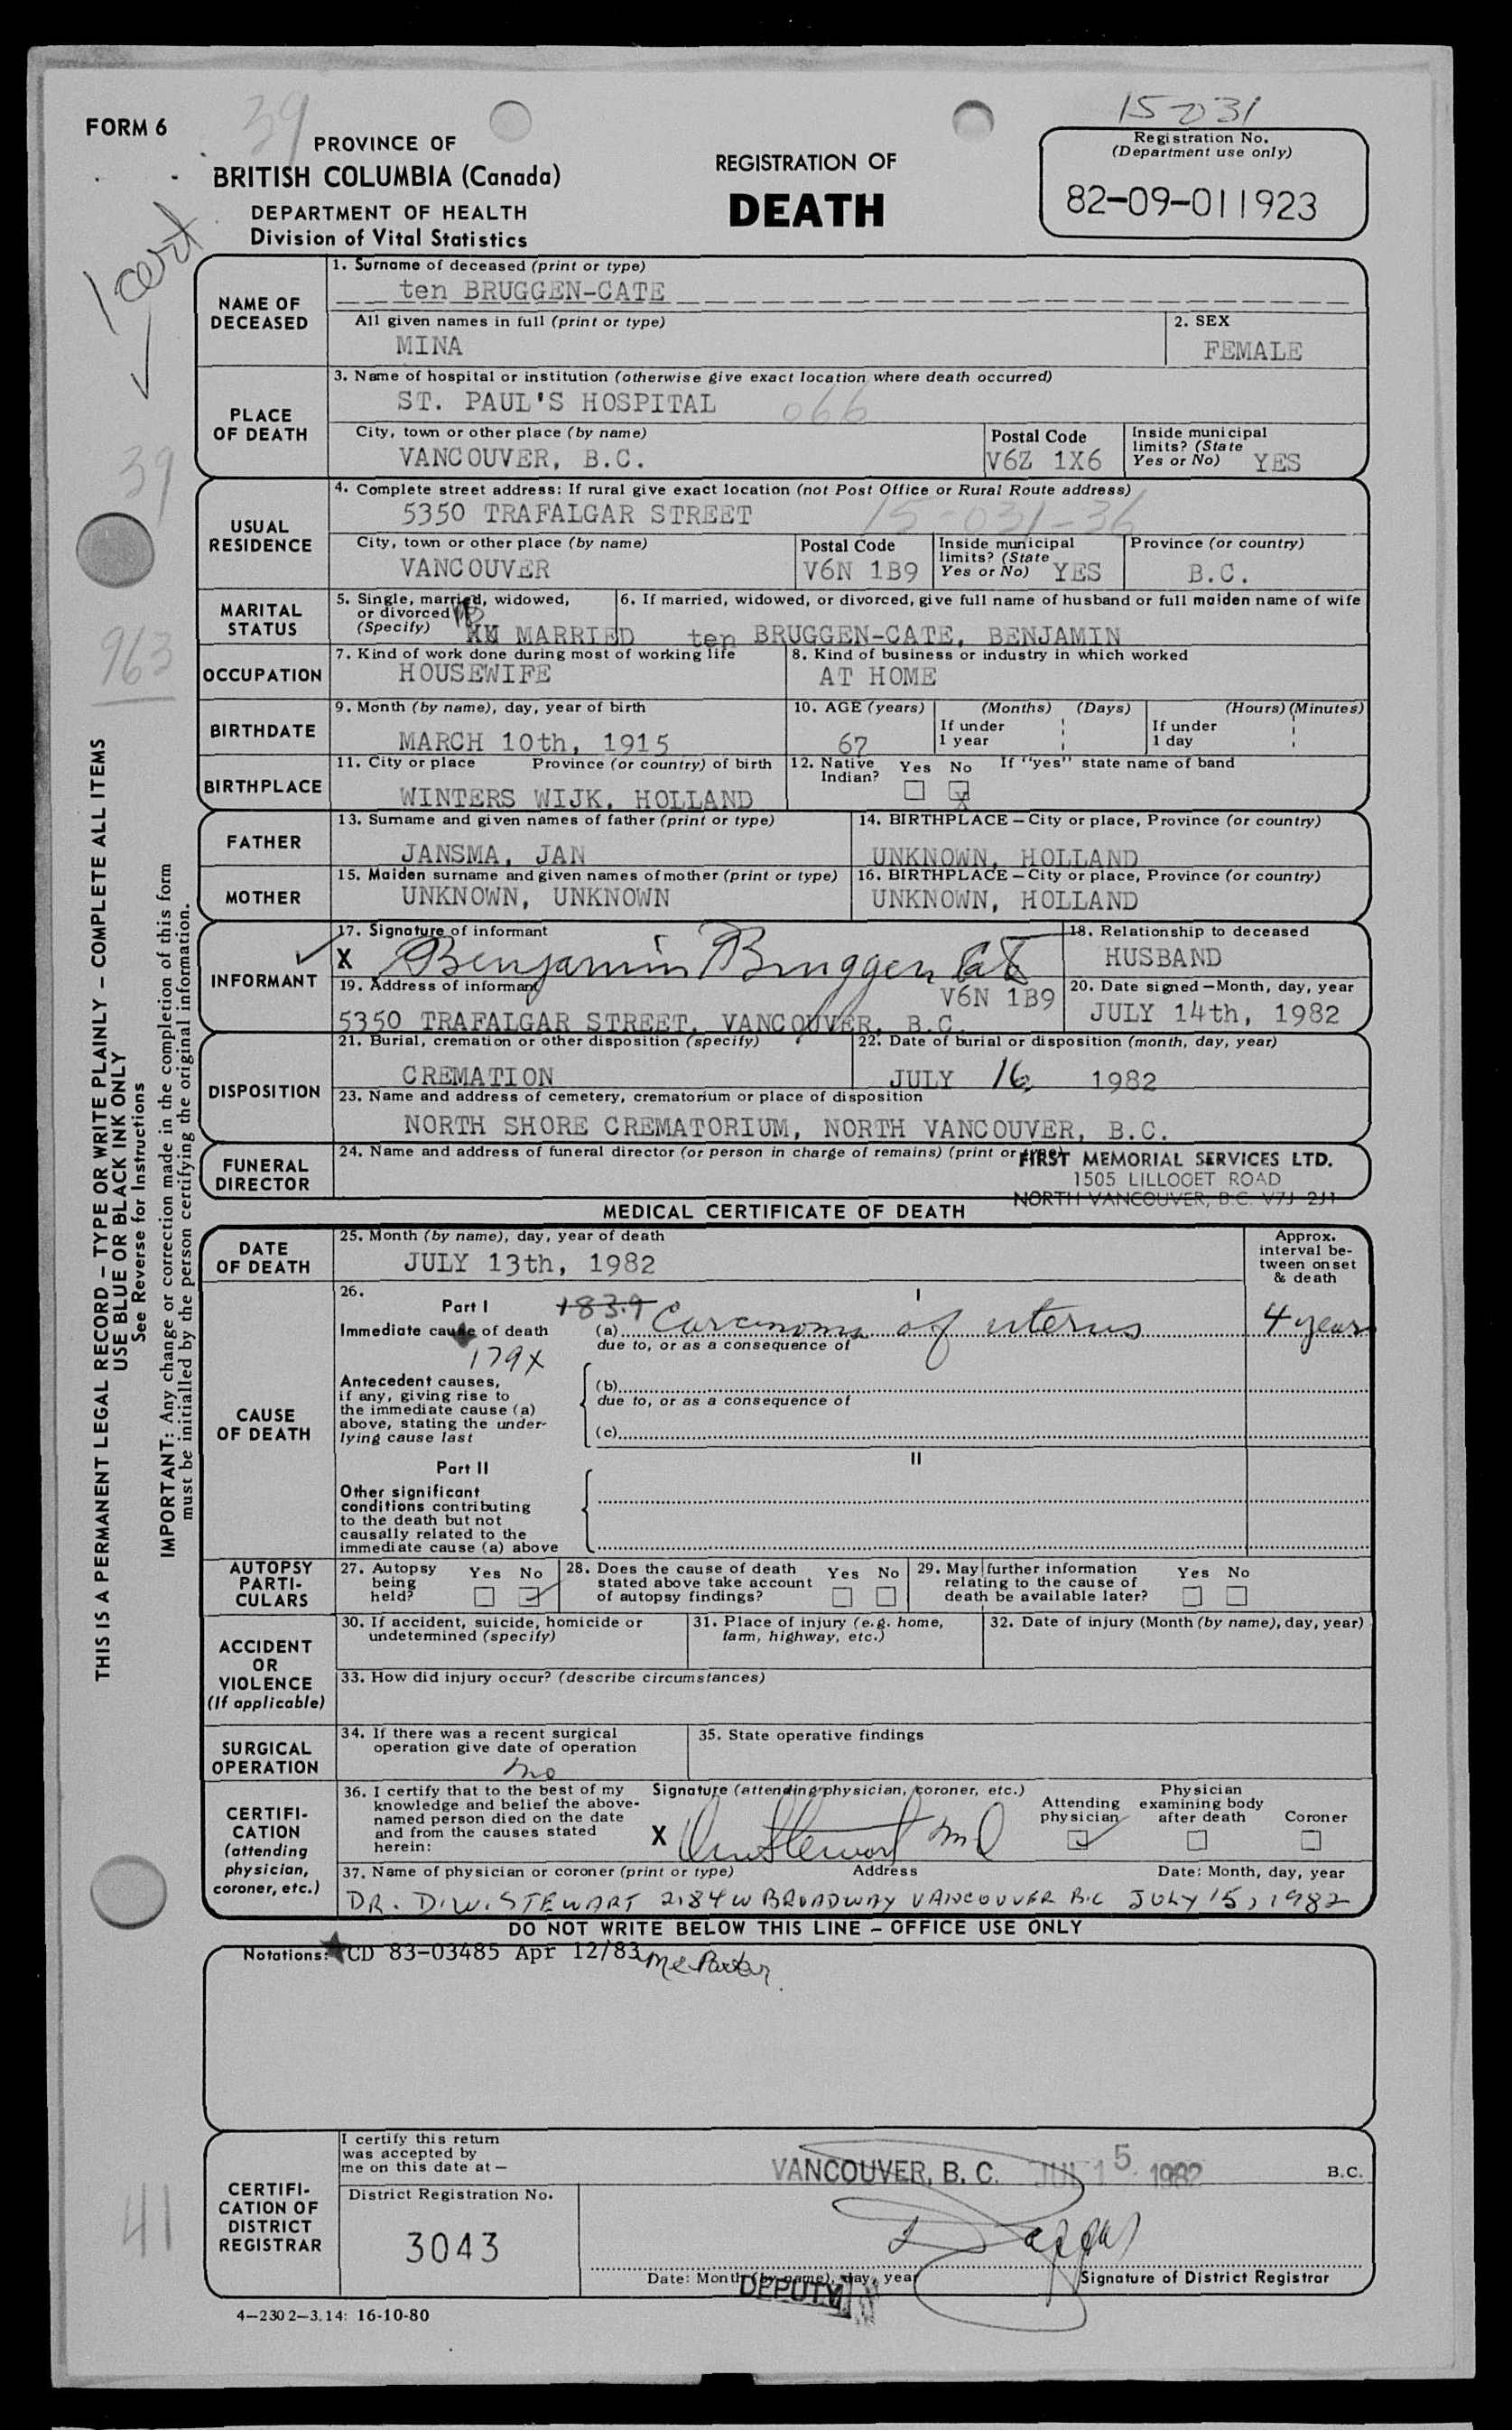 15-031
FORM 6
39
PROVINCE OF
BRITISH COLUMBIA (Canada)
DEPARTMENT OF HEALTH
Division of Vital Statistics
REGISTRATION OF
DEATH
Registration No.
(Department use only)
82-09-011923
1 cert
39
963
41
THIS IS A PERMANENT LEGAL RECORD – TYPE OR WRITE PLAINLY – COMPLETE ALL ITEMS
USE BLUE OR BLACK INK ONLY
See Reverse for Instructions
IMPORTANT: Any change or correction made in the completion of this form
must be initialled by the person certifying the original information.
NAME OF
DECEASED
1. Surname of deceased (print or type)
ten BRUGGEN-CATE
All given names in full (print or type)
MINA
2. SEX
FEMALE
PLACE
OF DEATH
3. Name of hospital or institution (otherwise give exact location where death occurred)
ST. PAUL'S HOSPITAL 066
City, town or other place (by name)
VANCOUVER, B.C.
Postal Code
V6Z 1X6
Inside municipal
limits? (State
Yes or No) YES
USUAL
RESIDENCE
4. Complete street address: If rural give exact location (not Post Office or Rural Route address)
5350 TRAFALGAR STREET 15-031-36
City, town or other place (by name)
VANCOUVER
Postal Code
V6N 1B9
Inside municipal
limits? (State
Yes or No) YES
Province (or country)
B.C.
MARITAL
STATUS
5. Single, married, widowed,
or divorced
(Specify)
MARRIED
6. If married, widowed, or divorced, give full name of husband or full maiden name of wife
ten BRUGGEN-CATE, BENJAMIN
OCCUPATION
7. Kind of work done during most of working life
HOUSEWIFE
8. Kind of business or industry in which worked
AT HOME
BIRTHDATE
9. Month (by name), day, year of birth
MARCH 10th, 1915
10. AGE (years)
67
(Months) (Days)
If under
1 year
(Hours) (Minutes)
If under
1 day
BIRTHPLACE
11. City or place Province (or country) of birth
WINTERS WIJK, HOLLAND
12. Native
Indian?
Yes No
X
If "yes" state name of band
FATHER
13. Surname and given names of father (print or type)
JANSMA, JAN
14. BIRTHPLACE – City or place, Province (or country)
UNKNOWN, HOLLAND
MOTHER
15. Maiden surname and given names of mother (print or type)
UNKNOWN, UNKNOWN
16. BIRTHPLACE – City or place, Province (or country)
UNKNOWN, HOLLAND
INFORMANT
17. Signature of informant
X Benjamin Bruggen Cate
18. Relationship to deceased
HUSBAND
19. Address of informant
V6N 1B9
5350 TRAFALGAR STREET, VANCOUVER, B.C.
20. Date signed – Month, day, year
JULY 14th, 1982
DISPOSITION
21. Burial, cremation or other disposition (specify)
CREMATION
22. Date of burial or disposition (month, day, year)
JULY 16, 1982
23. Name and address of cemetery, crematorium or place of disposition
NORTH SHORE CREMATORIUM, NORTH VANCOUVER, B.C.
FUNERAL
DIRECTOR
24. Name and address of funeral director (or person in charge of remains) (print or type)
FIRST MEMORIAL SERVICES LTD.
1505 LILLOOET ROAD
NORTH VANCOUVER, B.C. V7J 2J1
MEDICAL CERTIFICATE OF DEATH
DATE
OF DEATH
25. Month (by name), day, year of death
JULY 13th, 1982
Approx.
interval be-
tween onset
& death
CAUSE
OF DEATH
26.
Part I
I
Immediate cause of death
183.9
179X
(a) Carcinoma of uterus
4 years
due to, or as a consequence of
Antecedent causes,
if any, giving rise to
the immediate cause (a)
above, stating the under-
lying cause last
(b)
due to, or as a consequence of
(c)
Part II
II
Other significant
conditions contributing
to the death but not
causally related to the
immediate cause (a) above
AUTOPSY
PARTI-
CULARS
27. Autopsy
being
held?
Yes No
28. Does the cause of death
stated above take account
of autopsy findings?
Yes No
29. May further information
relating to the cause of
death be available later?
Yes No
ACCIDENT
OR
VIOLENCE
(If applicable)
30. If accident, suicide, homicide or
undetermined (specify)
31. Place of injury (e.g. home,
farm, highway, etc.)
32. Date of injury (Month (by name), day, year)
33. How did injury occur? (describe circumstances)
SURGICAL
OPERATION
34. If there was a recent surgical
operation give date of operation
no
35. State operative findings
CERTIFI-
CATION
(attending
physician,
coroner, etc.)
36. I certify that to the best of my
knowledge and belief the above-
named person died on the date
and from the causes stated
herein:
Signature (attending physician, coroner, etc.)
X DW Stewart MD
Attending
physician
Physician
examining body
after death
Coroner
37. Name of physician or coroner (print or type) Address Date: Month, day, year
DR. D.W. STEWART 2184 W BROADWAY VANCOUVER B.C JULY 15, 1982
DO NOT WRITE BELOW THIS LINE – OFFICE USE ONLY
Notations: CD 83-03485 Apr 12/83
CERTIFI-
CATION OF
DISTRICT
REGISTRAR
I certify this return
was accepted by
me on this date at –
VANCOUVER, B. C. JUL 15 1982 B.C.
District Registration No.
3043
Date: Month (by name), day, year
DEPUTY
Signature of District Registrar
4–2302–3.14: 16-10-80